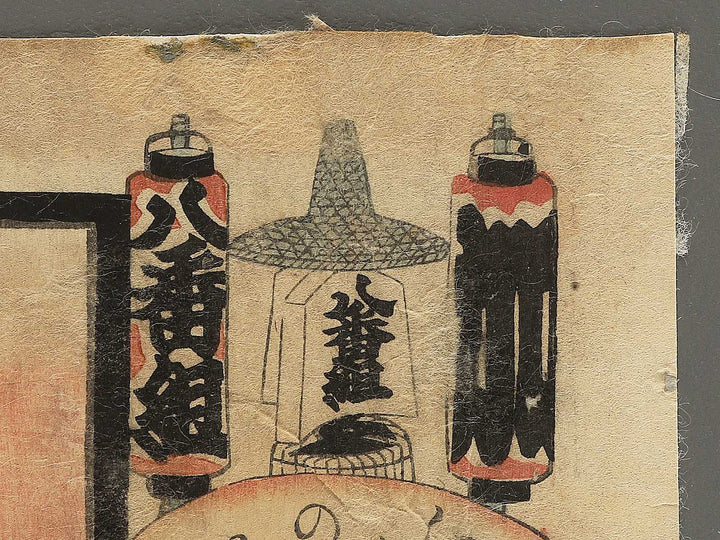 八番組
八番組
の